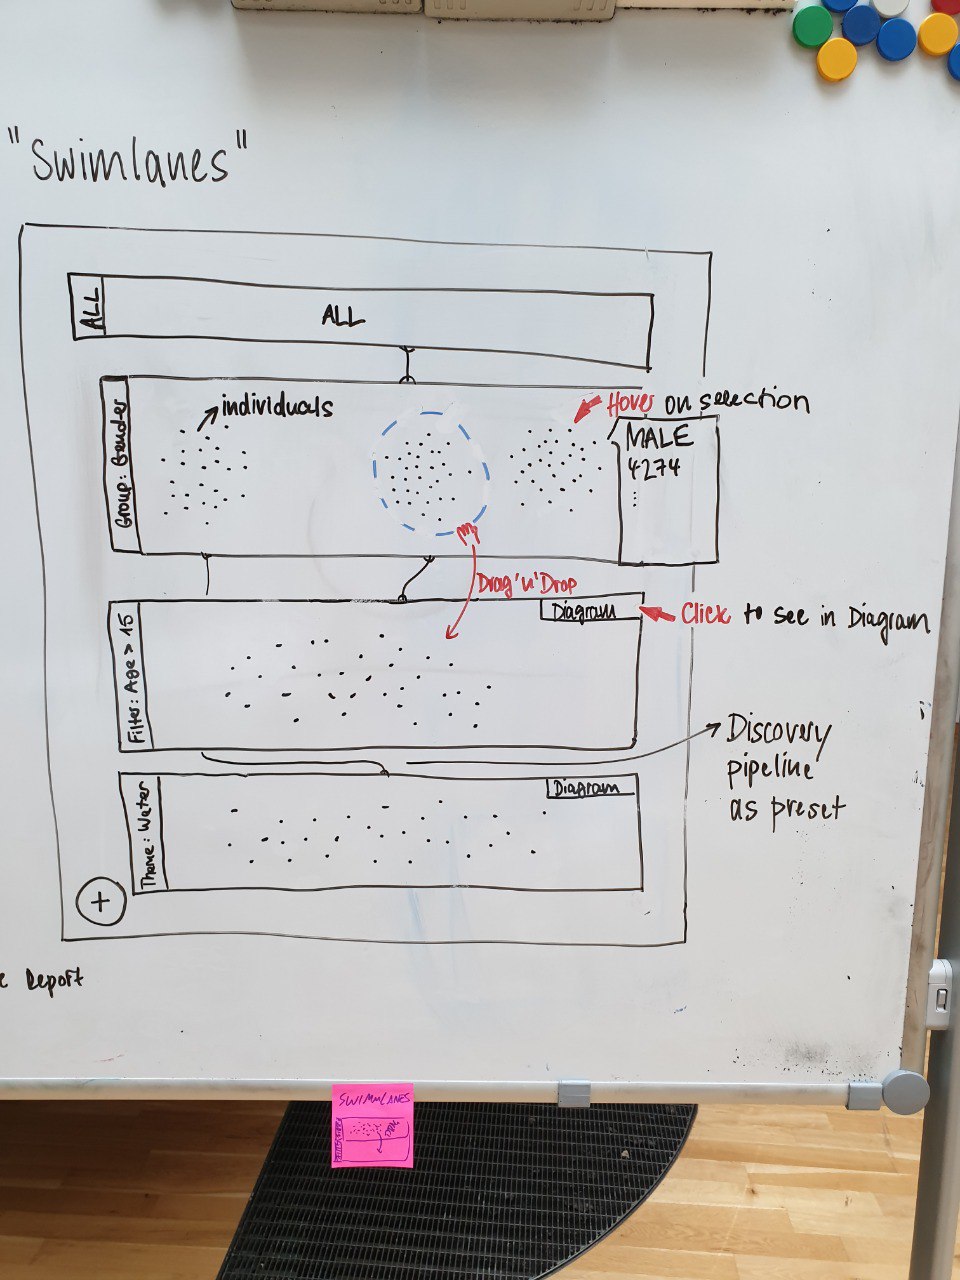 "Swimlanes"
ALL
ALL
Group: Gender
individuals
Hover on selection
MALE
4274
⋮
Drag 'n' Drop
Filter: Age > 15
Diagram
Click to see in Diagram
Discovery
pipeline
as preset
Theme: Water
Diagram
+
Report
SWIMMLANES